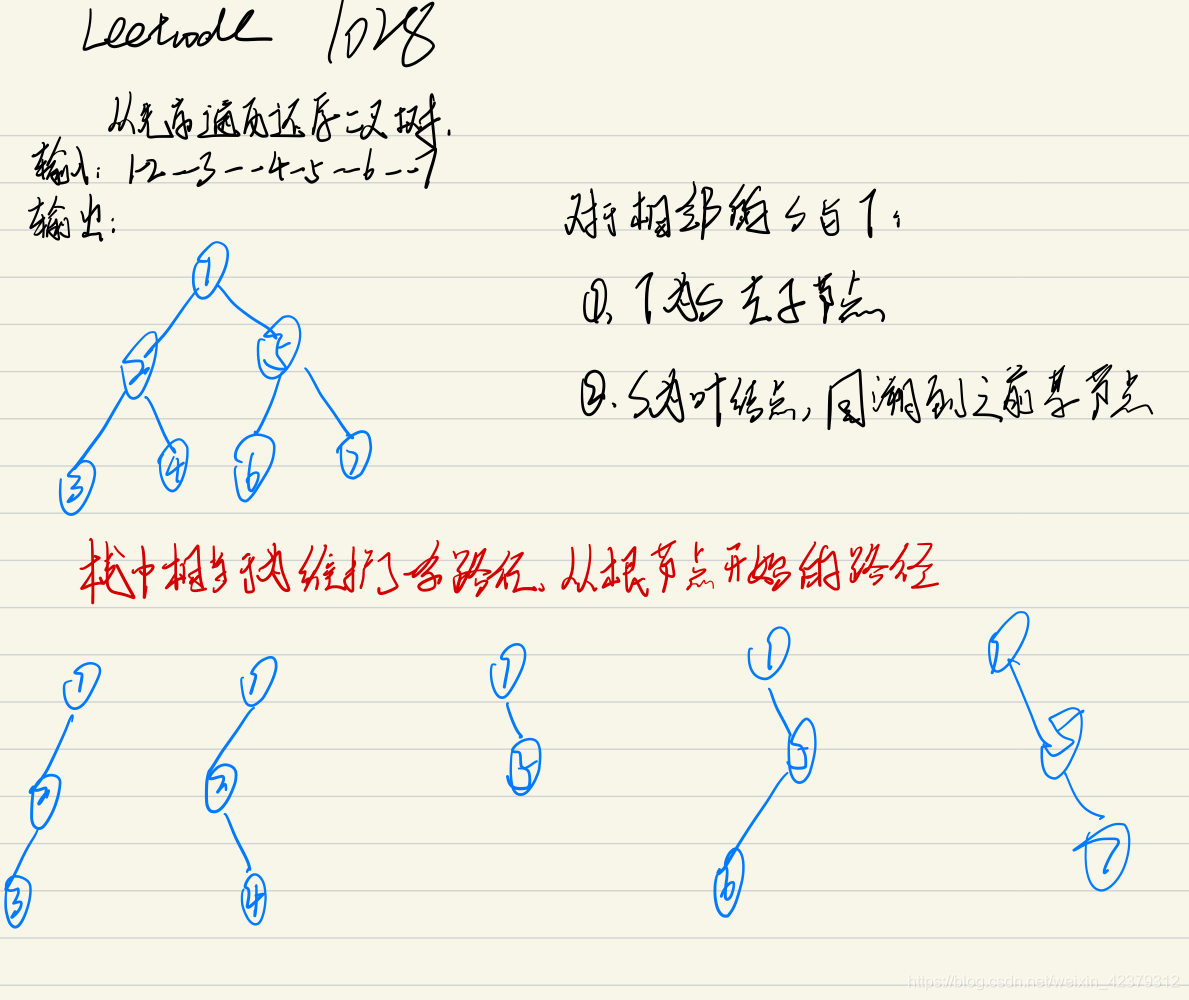 Leetcode 1028
从先序遍历还原二叉树.
输入: 1-2--3--4-5--6--7
输出:
对于相邻的 S 与 T:
①. T为S 左子节点
②. S为叶结点, 回溯到之前某节点
1
2 5
3 4 6 7
栈中相当于为维护了条路径, 从根节点开始的路径
1 1 1 1 1
2 2 5 5 5
3 4 6 7
https://blog.csdn.net/weixin_42379312